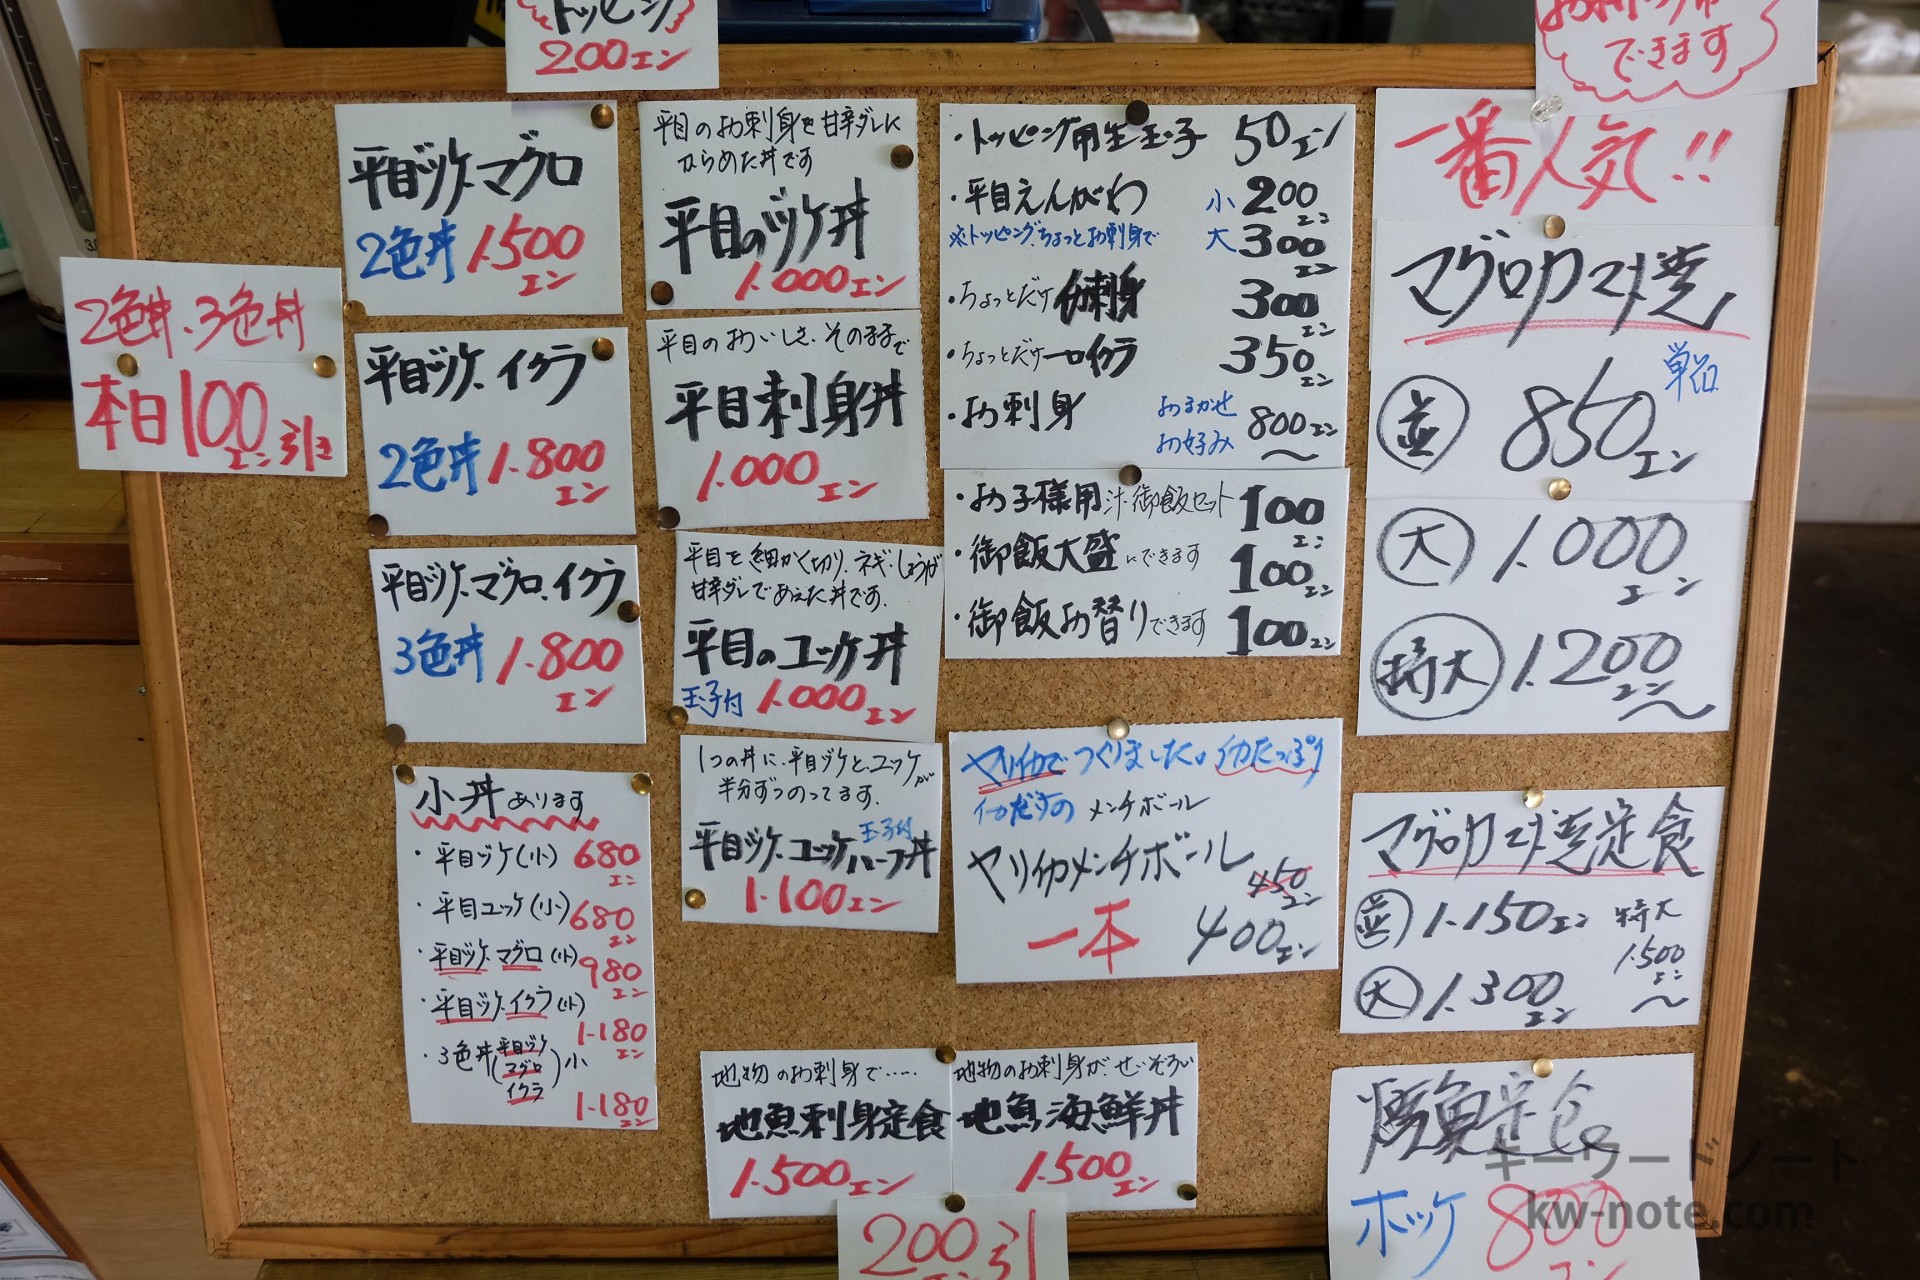 トッピング
200エン
できます
2色丼、3色丼
本日100エン引き
平目ヅケ、マグロ
2色丼 1.500エン
平目ヅケ、イクラ
2色丼 1.800エン
平目ヅケ、マグロ、イクラ
3色丼 1.800エン
小丼あります
・平目ヅケ(小) 680エン
・平目ユッケ(小) 680エン
・平目ヅケ、マグロ(小) 980エン
・平目ヅケ、イクラ(小) 1.180エン
・3色丼(平目ヅケ マグロ イクラ)小 1.180エン
平目のお刺身を甘辛ダレに
からめた丼です
平目のヅケ丼
1.000エン
平目のおいしさ、そのままで
平目刺身丼
1.000エン
平目を細かく切り、ネギ、しょうが
甘辛ダレであえた丼です。
平目のユッケ丼
玉子付 1.000エン
1つの丼に、平目ヅケと、ユッケが
半分ずつのってます。
玉子付
平目ヅケ、ユッケハーフ丼
1.100エン
・トッピング用生玉子 50エン
・平目えんがわ 小 200エン
※トッピング、ちょっとお刺身で 大 300エン
・ちょっとだけお刺身 300エン
・ちょっとだけ一口イクラ 350エン
・お刺身 おまかせ お好み 800エン〜
・お子様用 汁・御飯セット 100エン
・御飯大盛にできます 100エン
・御飯お替りできます 100エン
ヤリイカでつくりました。イカたっぷり
イカだけの メンチボール
ヤリイカメンチボール
450エン
一本 400エン
地物のお刺身で……
地魚刺身定食
1.500エン
地物のお刺身がせいぞろい
地魚海鮮丼
1.500エン
200エン引
一番人気!!
マグロカマ焼
単品
並 850エン
大 1.000エン
特大 1.200エン〜
マグロカマ焼定食
並 1.150エン
大 1.300エン
特大 1.500エン〜
焼魚定食
ホッケ 800エン
キーワードノート
kw-note.com